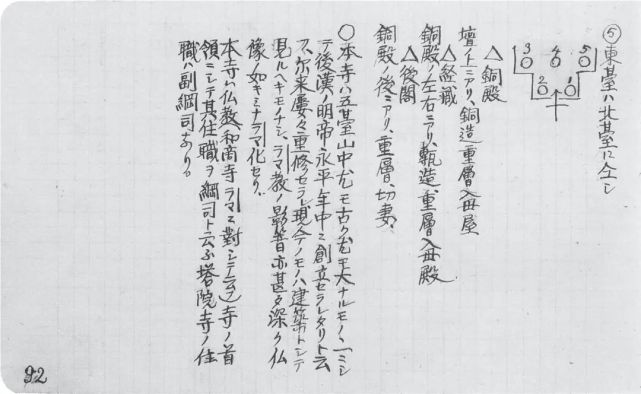 ⑤東臺ハ北臺に仝シ
3 4 5
2 1
△銅殿
壇ノ上ニアリ、銅造重層入母屋
△経蔵
銅殿ノ左右ニアリ、甎造、重層入母殿
△後閣
銅殿ノ後ニアリ、重層、切妻、
〇本寺ハ五臺山中尤モ古ク尤モ大ナルモノヽ一ニシ
テ後漢ノ明帝永平年中ニ創立セラレタリト云
フ、尓来屡々重修セラレ現今ノモノハ建築トシテ
見ルヘキモノナシ、ラマ教ノ影響亦甚タ深ク仏
像ノ如キミナラマ化セリ、
本寺ハ仏教和尚寺ラマニ對シテ云フ寺ノ首
領ニシテ其住職ヲ綱司ト云ふ塔院寺ノ住
職ハ副綱司なり。
92